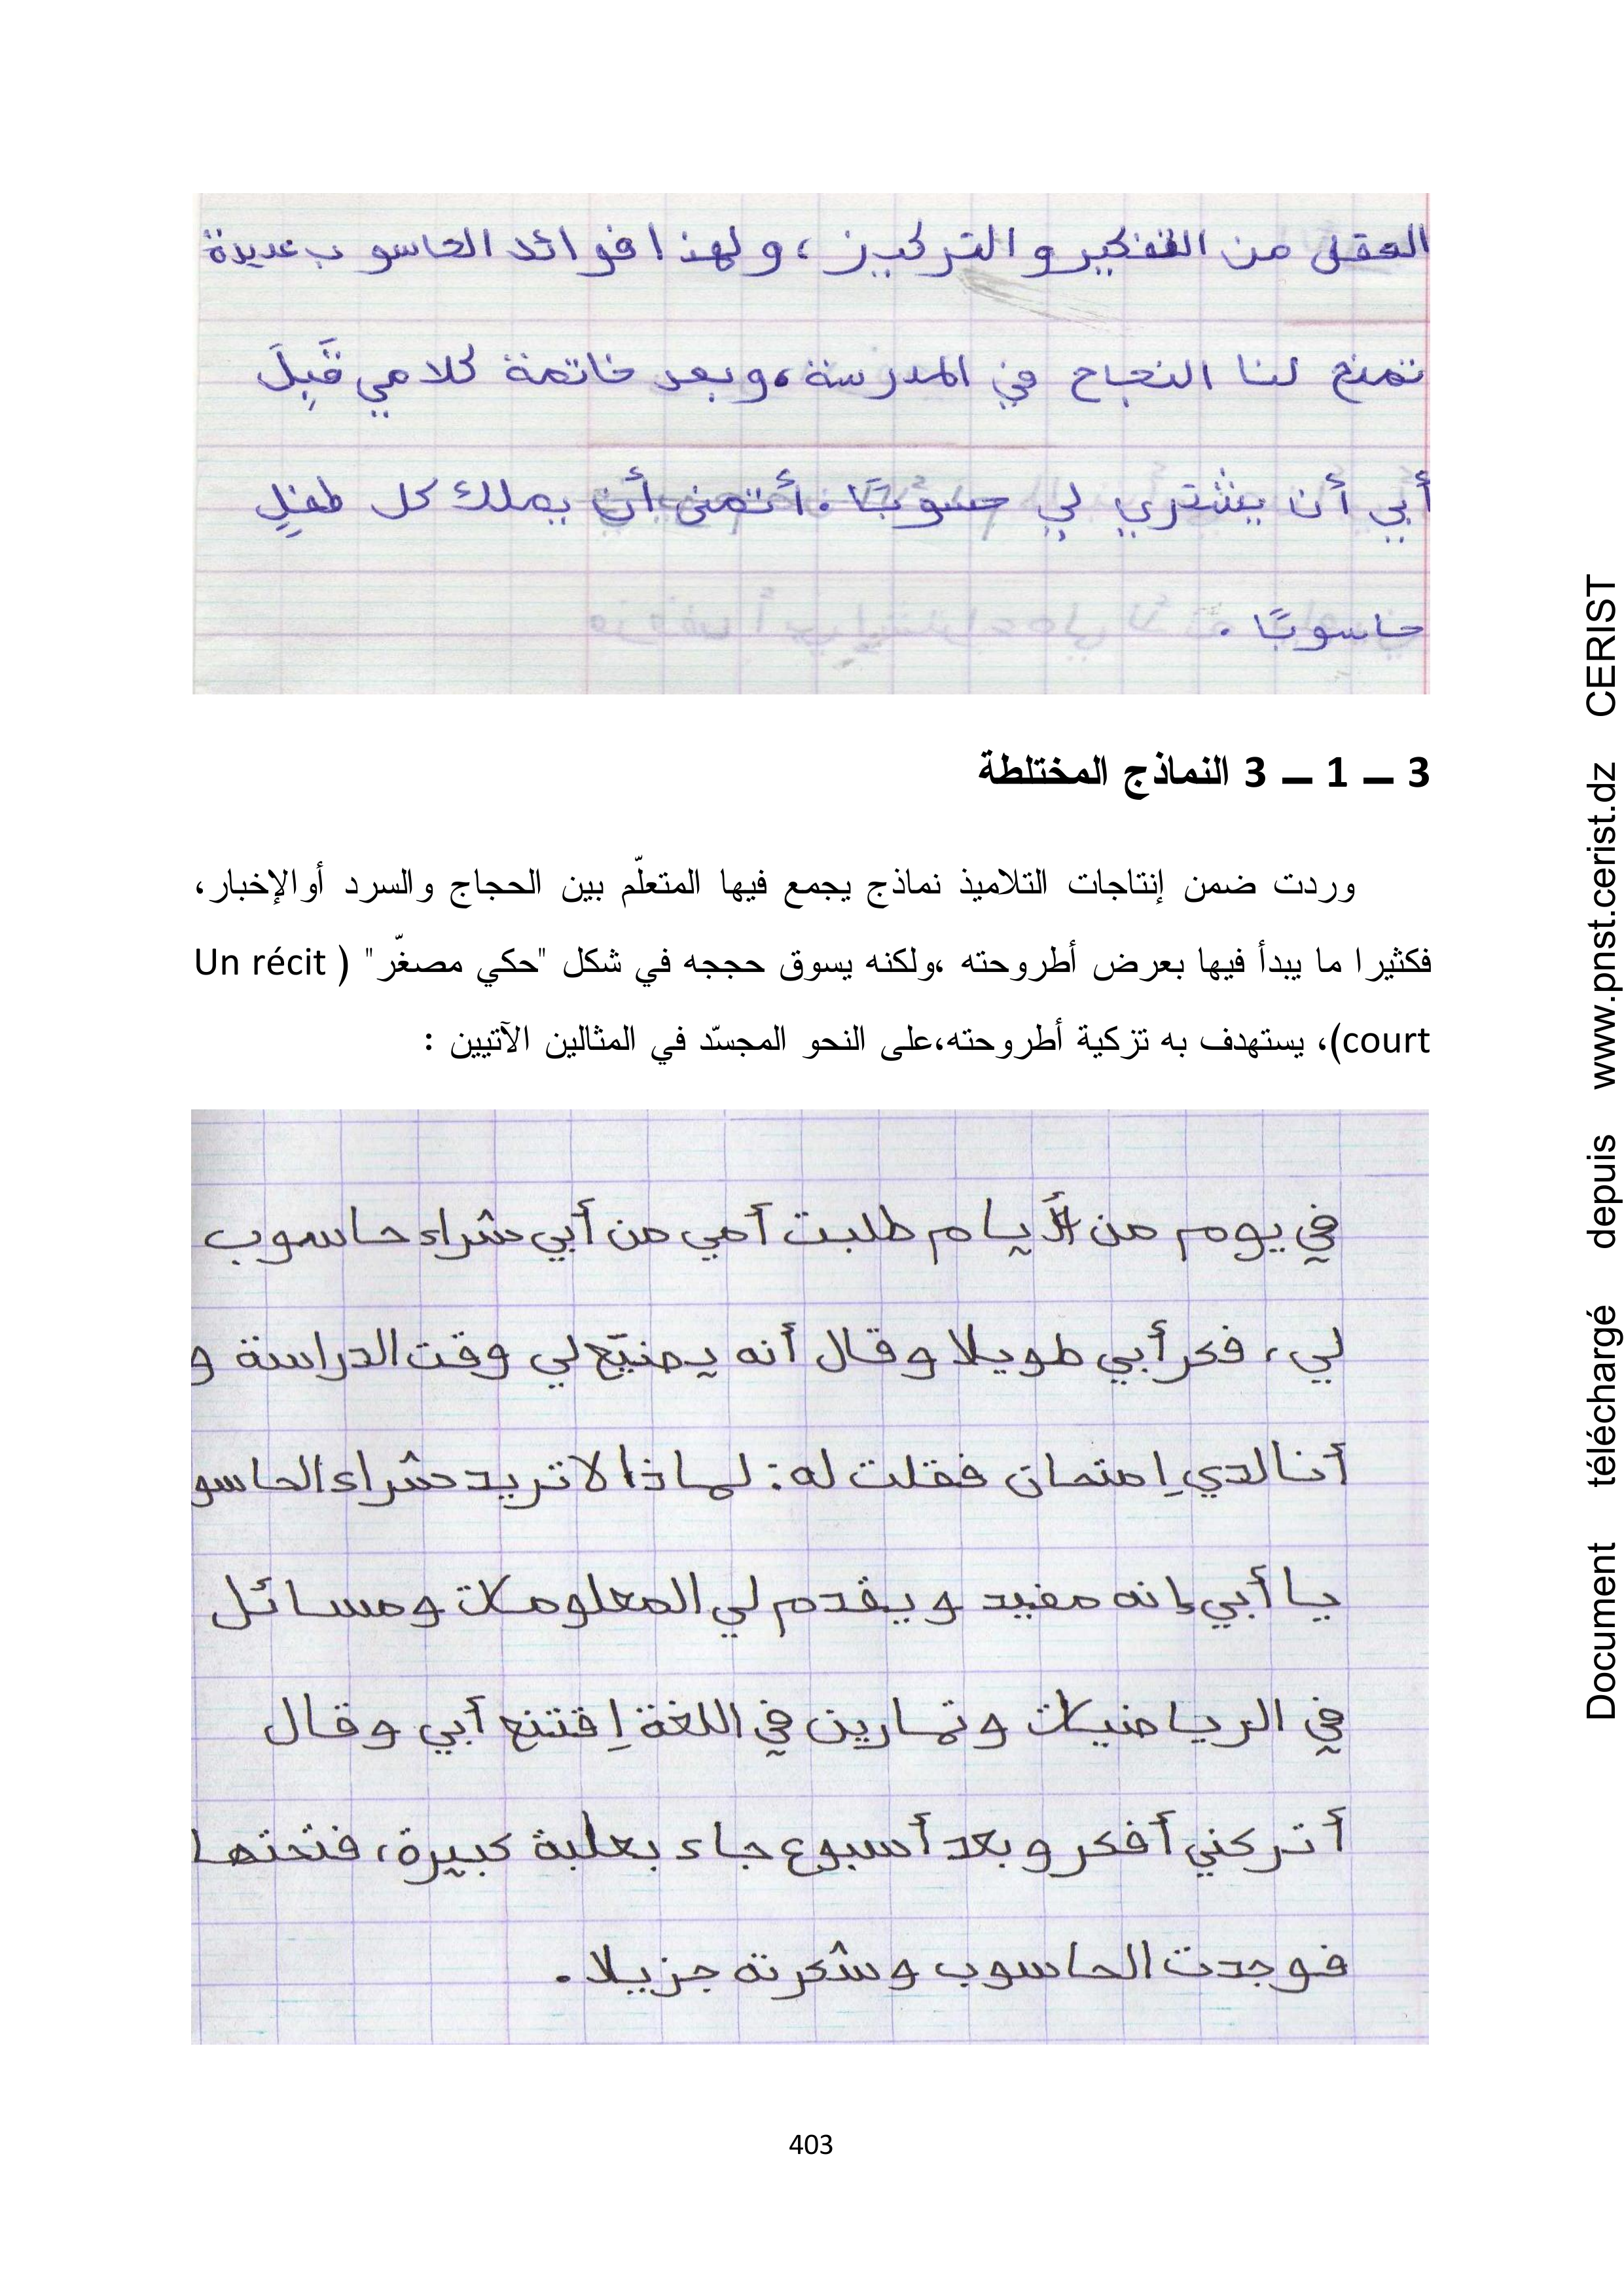 العقل من التفكير و التركيز ، و لهذا فوائد الحاسوب عديدة
تمنع لنا النجاح في المدرسة، وبعد خاتمة كلامي قَبِلَ
أبي أن يشتري لي حسوبًا . أتمنى أن يملك كل طفلٍ
حاسوبًا .
3 – 1 – 3 النماذج المختلطة
وردت ضمن إنتاجات التلاميذ نماذج يجمع فيها المتعلّم بين الحجاج والسرد أوالإخبار،
فكثيرا ما يبدأ فيها بعرض أطروحته ،ولكنه يسوق حججه في شكل "حكي مصغّر" ( Un récit
court)، يستهدف به تزكية أطروحته،على النحو المجسّد في المثالين الآتيين :
في يوم من الأيام طلبت أمي من أبي شراء حاسوب
لي، فكر أبي طويلا و قال أنه يضيّع لي وقت الدراسة و
أنا لدي إمتحان فقلت له : لماذا لا تريد شراء الحاسو
يا أبي إنه مفيد و يقدم لي المعلومات و مسائل
في الرياضيات و تمارين في اللغة إقتنع أبي و قال
أتركني أفكر و بعد أسبوع جاء بعلبة كبيرة، فتحتها
فوجدت الحاسوب و شكرته جزيلا .
403
Document téléchargé depuis www.pnst.cerist.dz CERIST